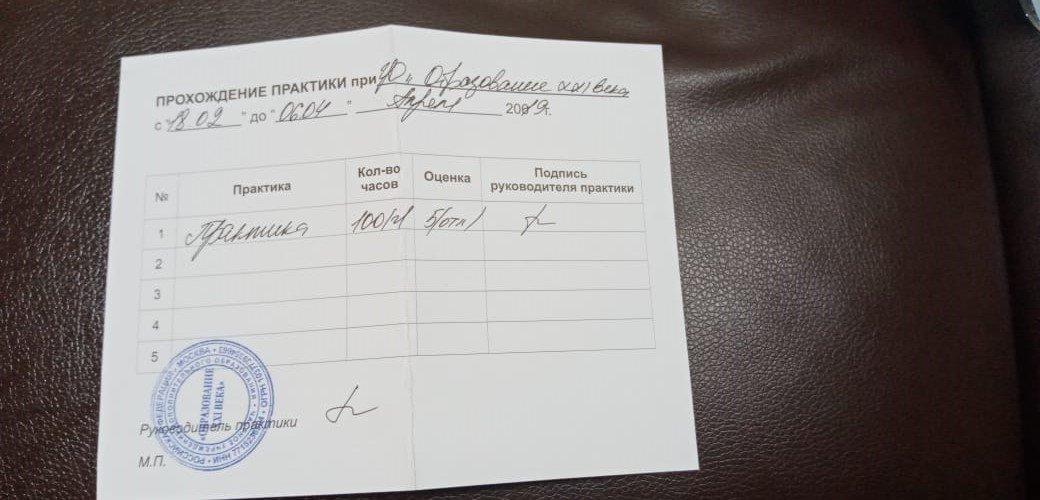 ПРОХОЖДЕНИЕ ПРАКТИКИ при УО „ Образование XXI века
с "18.02" до "06.04" " Апреля 2019г.
№ Практика Кол-во часов Оценка Подпись руководителя практики
1 Практика 100/ч 5(отл)
2
3
4
5
РОССИЙСКАЯ ФЕДЕРАЦИЯ • МОСКВА •
ДОПОЛНИТЕЛЬНОГО ОБРАЗОВАНИЯ
«ОБРАЗОВАНИЕ
XXI ВЕКА»
Руководитель практики
М.П.